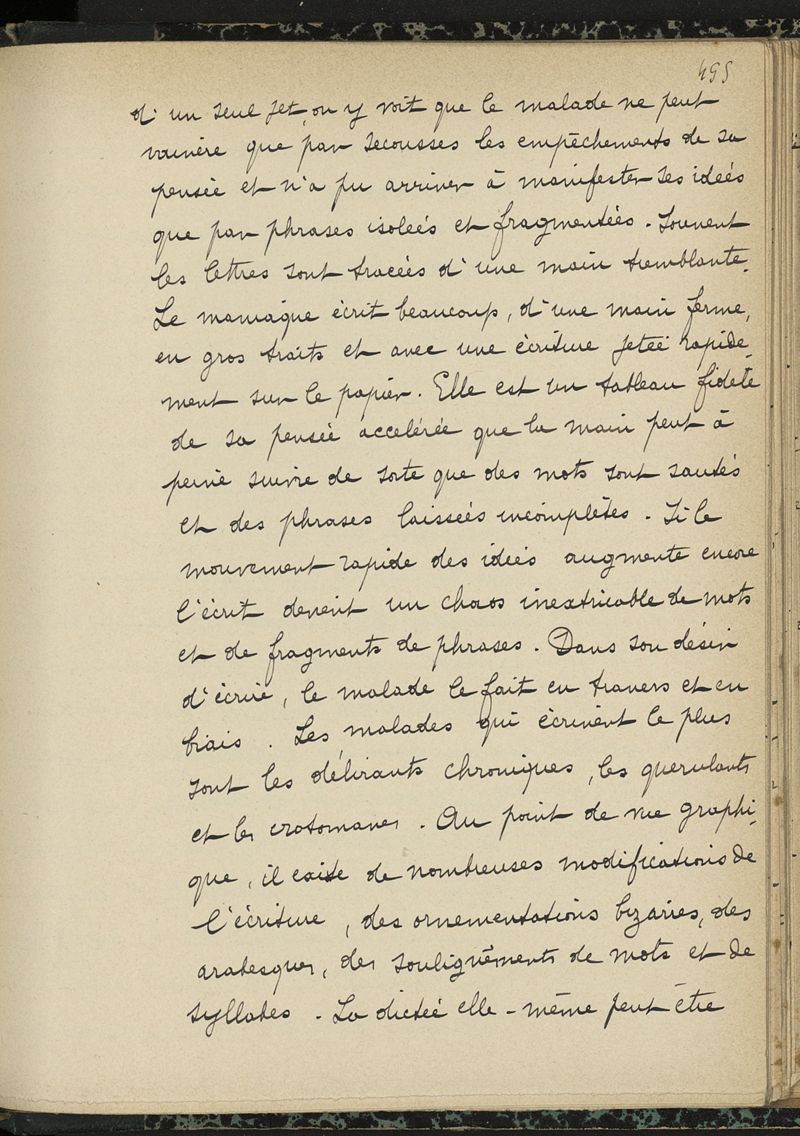 495
d'un seul jet, on y voit que le malade ne peut
vaincre que par secousses les empêchements de sa
pensée et n'a pu arriver à manifester ses idées
que par phrases isolées et fragmentées. Souvent
les lettres sont tracées d'une main tremblante.
Le maniaque écrit beaucoup, d'une main ferme,
en gros traits et avec une écriture jetée rapide-
ment sur le papier. Elle est un tableau fidèle
de sa pensée accélérée que la main peut à
peine suivre de sorte que des mots sont sautés
et des phrases laissées incomplètes. Si le
mouvement rapide des idées augmente encore
l'écrit devient un chaos inextricable de mots
et de fragments de phrases. Dans son désir
d'écrire, le malade le fait en travers et en
biais. Les malades qui écrivent le plus
sont les délirants chroniques, les querulants
et les erotomanes. Au point de vue graphi-
que, il existe de nombreuses modifications de
l'écriture, des ornementations bizarres, des
arabesques, des soulignements de mots et de
syllabes. La dictée elle-même peut être